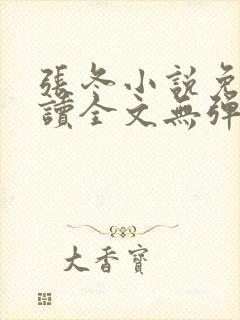 張冬小說免
讀全文無彈
大香寶